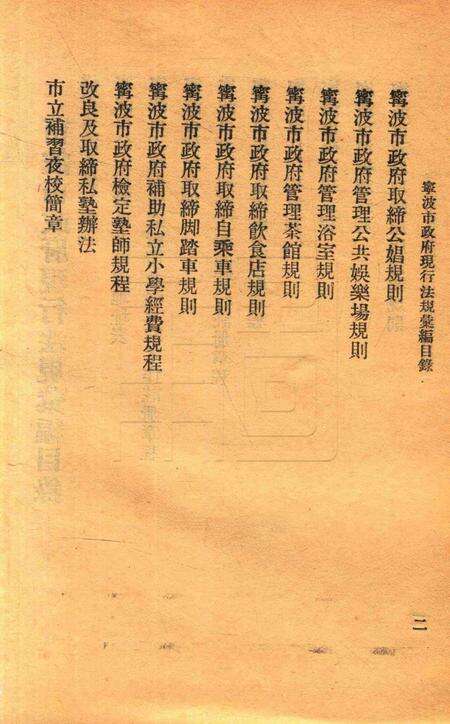 甯波市政府現行法規彙編目錄
甯波市政府取締公娼規則
甯波市政府管理公共娛樂場規則
甯波市政府管理浴室規則
甯波市政府管理茶館規則
甯波市政府取締飲食店規則
甯波市政府取締自乘車規則
甯波市政府取締脚踏車規則
甯波市政府補助私立小學經費規程
甯波市政府檢定塾師規程
改良及取締私塾辦法
市立補習夜校簡章
二